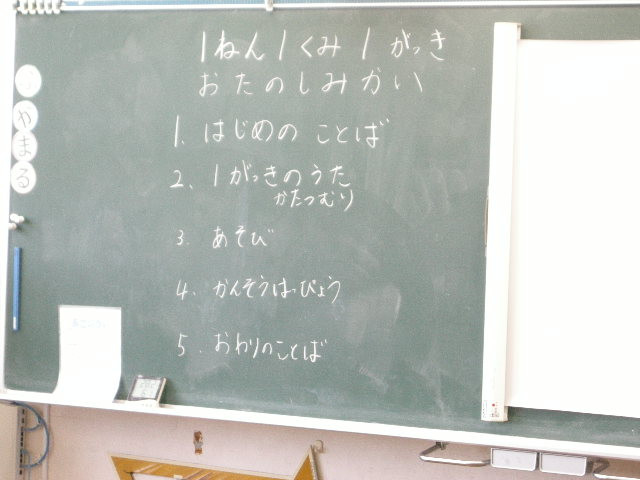 1ねん1くみ1がっき
おたのしみかい
1. はじめの ことば
2、1がっきのうた
かたつむり
3. あそび
4、かんそうはっぴょう
5. おわりのことば
やまる